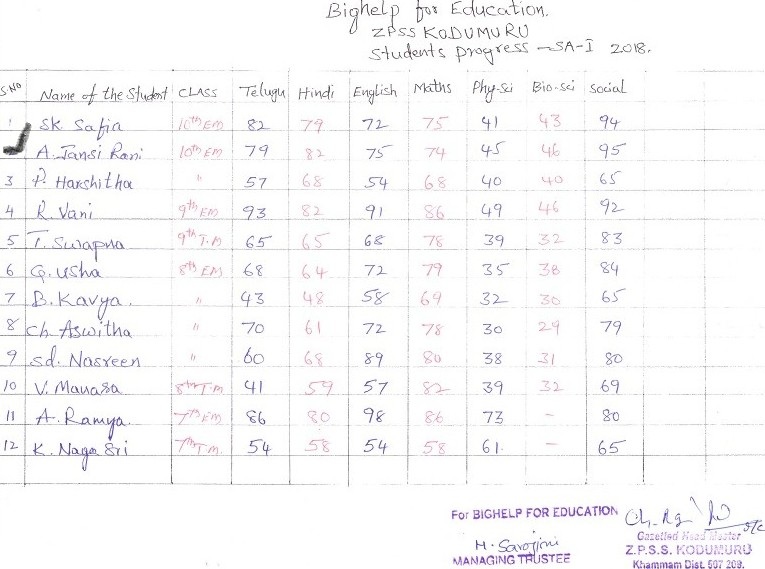 Bighelp for Education.
ZPSS KODUMURU
Students progress - SA-I 2018.
S.NO Name of the Student CLASS Telugu Hindi English Maths Phy-sci Bio-sci Social
1 SK. Safia 10th EM 82 79 72 75 41 43 94
A. Jansi Rani 10th EM 79 82 75 74 45 46 95
3 P. Harshitha " 57 68 54 68 40 40 65
4 R. Vani 9th EM 93 82 91 86 49 46 92
5 T. Swapna 9th T.M 65 65 68 78 39 32 83
6 G. Usha 8th EM 68 64 72 79 35 38 84
7 B. Kavya. " 43 48 58 69 32 30 65
8 Ch. Aswitha " 70 61 72 78 30 29 79
9 Sd. Nasreen " 60 68 89 80 38 31 80
10 V. Manasa 8th T.M 41 59 57 82 39 32 69
11 A. Ramya. 7th EM 86 80 98 86 73 - 80
12 K. Naga Sri 7th T.M. 54 58 54 58 61. - 65
For BIGHELP FOR EDUCATION
M. Sarojini
MANAGING TRUSTEE
Gazetted Head Master
Z.P.S.S. KODUMURU
Khammam Dist. 507 209.